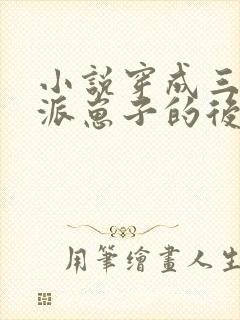 小説穿成三
派崽子的後
用筆繪畫人生